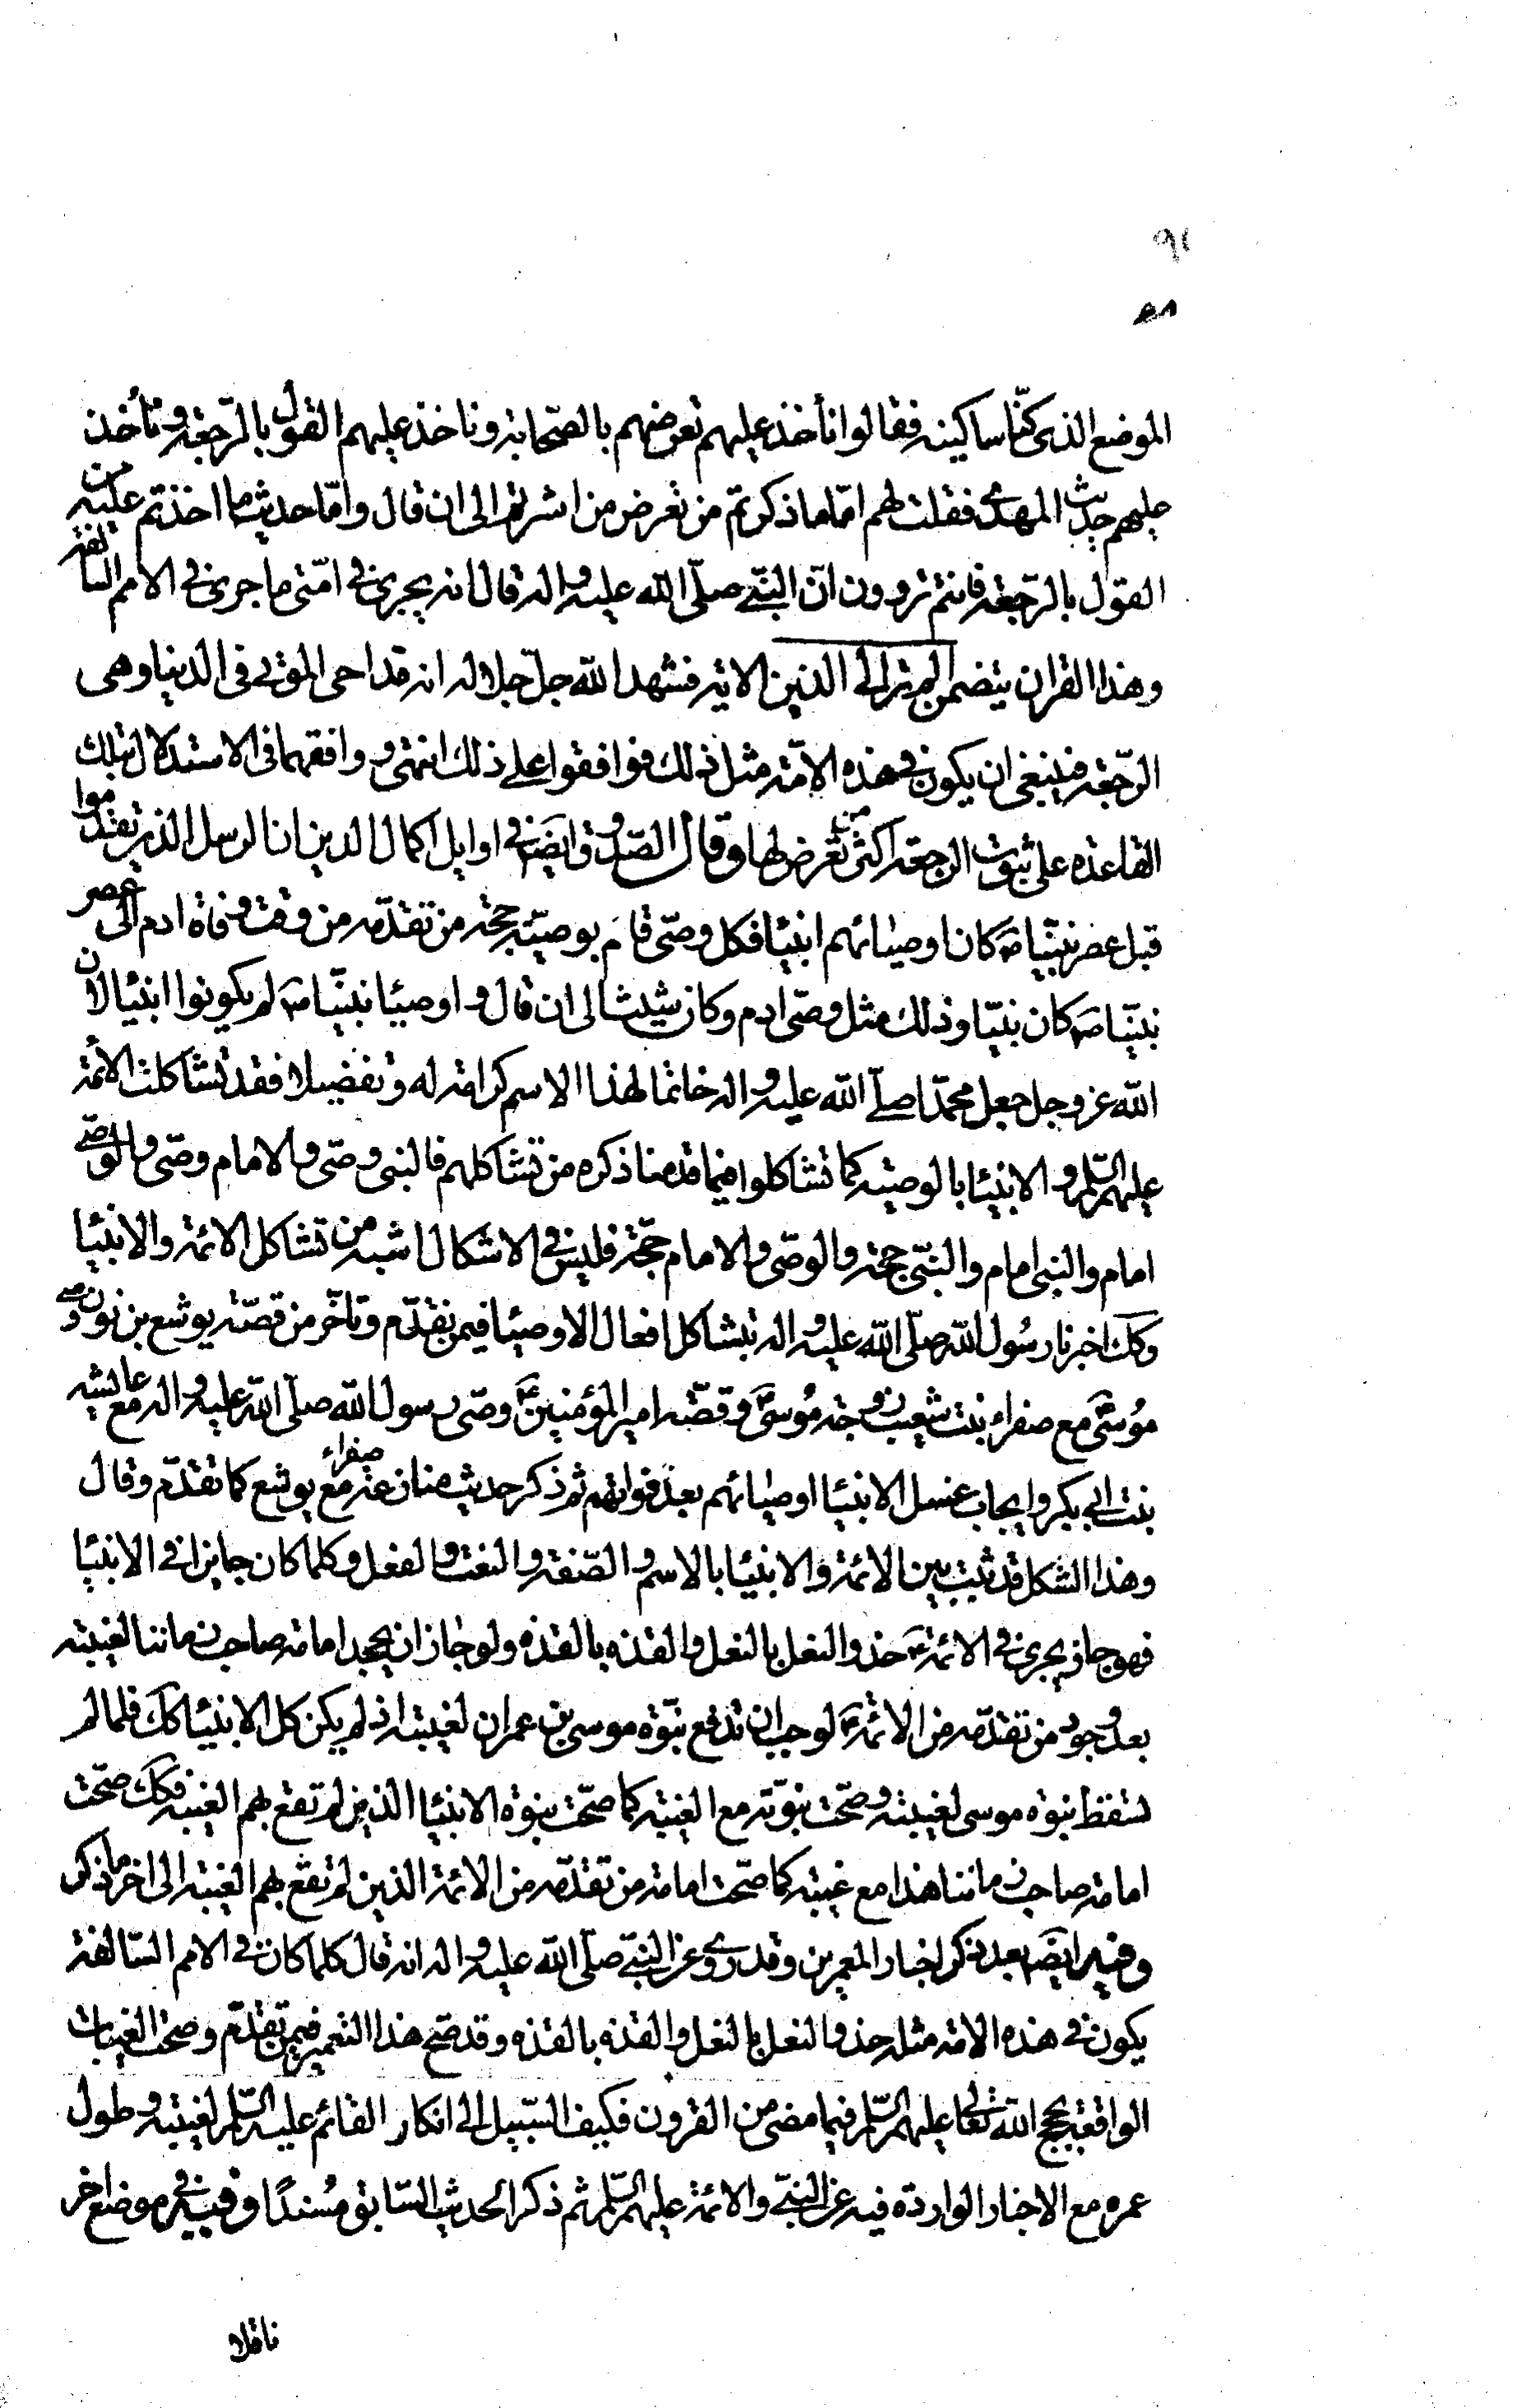 الموضع الذى كنّا ساكينه فقالوا نأخذ عليهم تعرضهم بالصّحابة ونأخذ عليهم القول بالرّجعة ونأخذ
عليهم حديث المهدى فقلت لهم امّا ما ذكرتم من تعرض من اشرتم الى ان قال وامّا حديث ما اخذتم عليه من
القول بالرّجعة فانتم تروون انّ النبىّ صلّى الله عليه واله قال انه يجرى فى امّتى ما جرى فى الامم السالفة
وهذا القران يتضمن الم تر الى الذين الاية فشهد الله جلّ جلاله انه قد احى الموتى فى الدنيا وهى
الرّجعة فينبغى ان يكون فى هذه الامّة مثل ذلك فوافقوا على ذلك انتهى ووافقهما فى الاستدلال بتلك
القاعدة على ثبوت الرجعة اكثر من تعرض لها وقال الصّدوق ايضَ فى اوايل اكمال الدين ان الرسل الذين تقدموا
قبل عصر نبيّنا صَ كان اوصيائهم انبيا فكل وصّى قام بوصيّة حجة من تقدّمه من وقت وفاة ادم الى عصر
نبيّنا صَ كان نبيّا وذلك مثل وصّى ادم وكان شيث الى ان قال واوصيا نبيّنا صَ لم يكونوا انبيا لان
الله عز وجل جعل محمّدا صلّى الله عليه واله خاتما لهذا الاسم كرامة له وتفضيلا فقد تشاكلت الأئمة
عليهم السّلم والانبيا بالوصية كما تشاكلوا فيما قدمنا ذكره من تشاكلهم فالنبى وصّى والامام وصّى والوصّى
امام والنبى امام والنبّى حجة والوصّى والامام حجّة فليس فى الاشكال اشبه من تشاكل الائمة والانبيا
وكك اخبرنا رسُول الله صلّى الله عليه واله بتشاكل افعال الاوصيا فيمن تقدّم وتاخّر من قصّة يوشع بن نون وصى
مُوسىَ مع صفراء بنت شعيب زوجة مُوسىَ وقصّة امير المؤمنينَ وصّى رسول الله صلّى الله عليه واله مع عايشه
بنت ابى بكر وايجاب غسل الانبيا اوصيائهم بعد وفواتهم ثم ذكر حديث منازعة صفراء مع يوشع كما تقدّم وقال
وهذا الشكل قد ثبت بين الائمة والانبيا بالاسم والصّفة والنعت والفعل وكلما كان جايزا فى الانبيا
فهو جايز يجرى فى الائمةَ حذو النعل بالنعل والقذه بالقذه ولو جاز ان يجحد امامة صاحب زماننا لغيبته
بعد وجود من تقدّمه من الائمةَ لوجب ان تدفع نبّوة موسى بن عمران لغيبته اذ لم يكن كل الانبيا كك فلما لم
تسقط نبوة موسى لغيبته وصحّت نبّوته مع الغيبة كما صحّت نبوة الانبيا الذين لم تقع بهم الغيبة فكك صحّت
امامة صاحب زماننا هذا مع غيبته كما صحّت امامة من تقدّمه من الائمة الذين لم تقع بهم الغيبة الى اخر ما ذكر
وفيه ايضَ بعد ذكر اخبار المعمرين وقد روى عن النبىّ صلّى الله عليه واله انه قال كلما كان فى الامم السّالفة
يكون فى هذه الامة مثله حذو النعل بالنعل والقذه بالقذه وقد صحّ هذا التعمير فيمن تقدّم وصحّت الغيبات
الواقعة بحجج الله تعالى عليهم السّلم فيما مضى من القرون فكيف السّبيل الى انكار القائم عليه السّلم لغيبته وطول
عمره مع الاخبار الواردة فيه عن النبىّ والائمة عليهم السّلم ثم ذكر الحديث السّابق مُسندًا وفيه فى موضع اخر
ناقلا